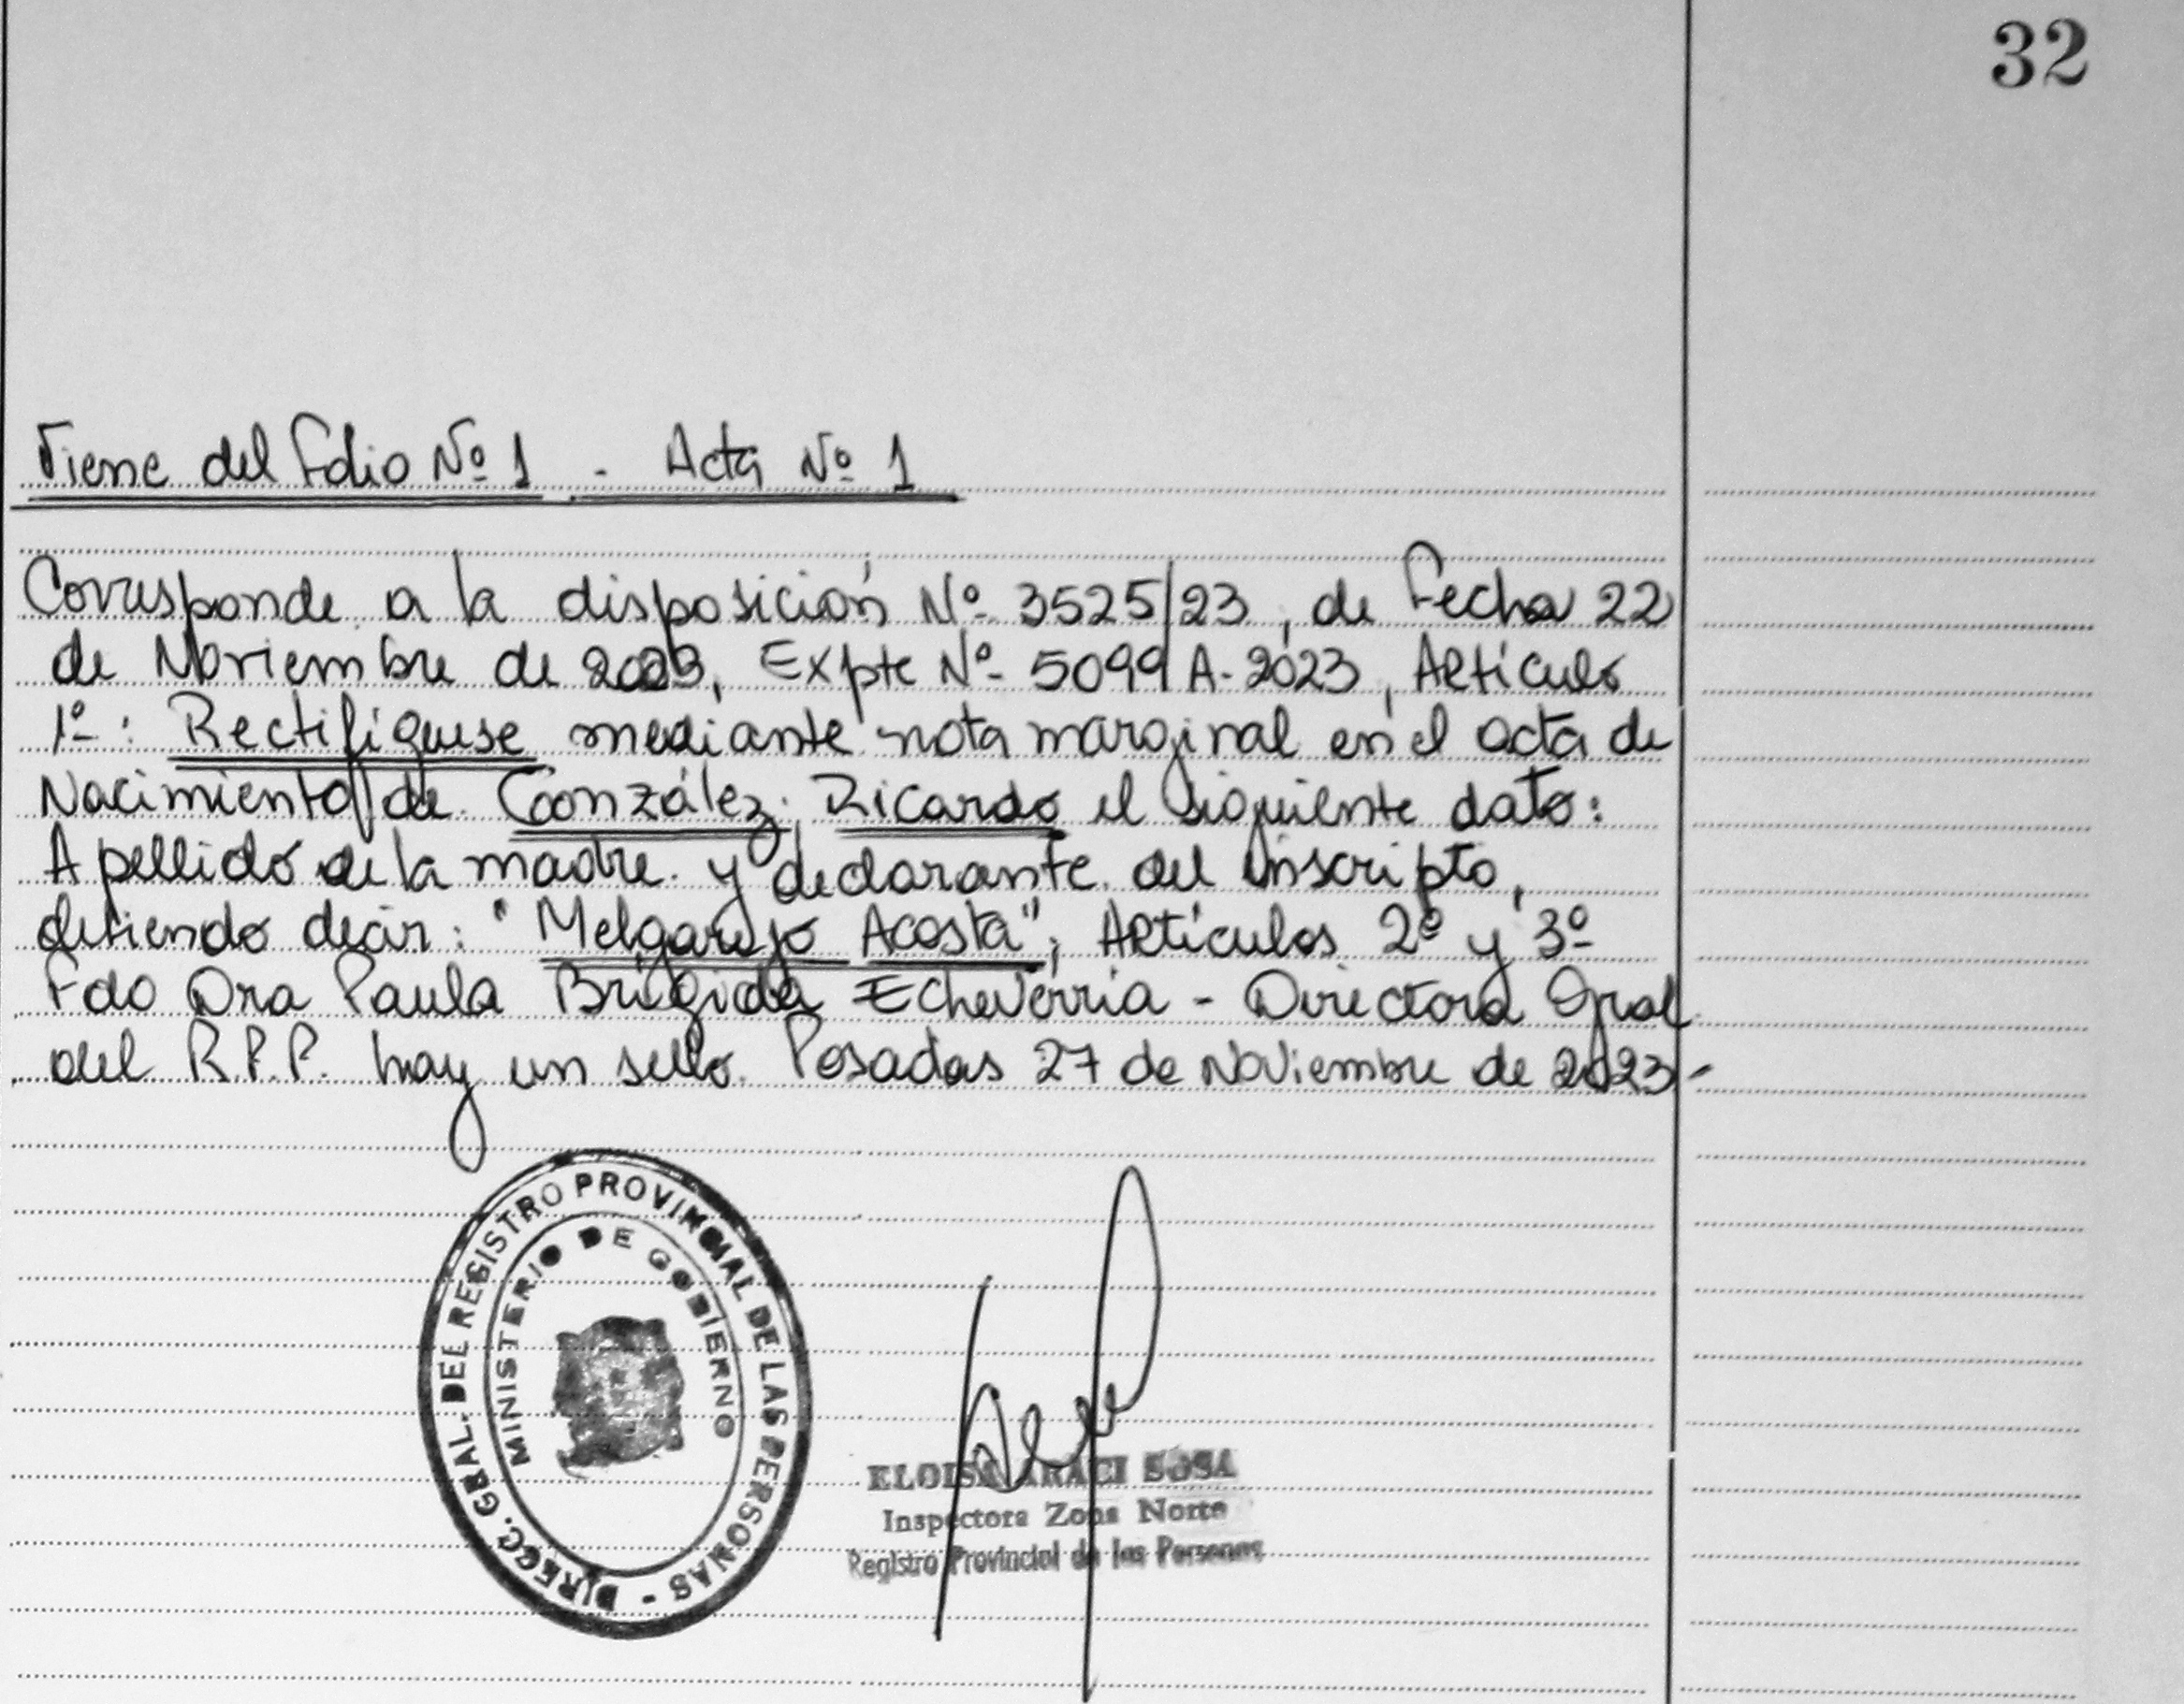 32
Viene del Folio Nº 1 - Acta Nº 1
Corresponde a la disposición Nº 3525/23, de Fecha 22
de Noviembre de 2023, Expte Nº 5099 A-2023, Artículo
1º: Rectifíquese mediante nota marginal en el acta de
Nacimiento de González, Ricardo el siguiente dato:
Apellido de la madre y declarante del inscripto,
debiendo decir: "Melgarejo Acosta"; Artículos 2º y 3º
Fdo Dra Paula Brígida Echeverría - Directora Gral
del R.P.P. hay un sello. Posadas 27 de Noviembre de 2023-
DIRECC. GRAL. DEL REGISTRO PROVINCIAL DE LAS PERSONAS -
MINISTERIO DE GOBIERNO
ELOISA ARACI SOSA
Inspectora Zona Norte
Registro Provincial de las Personas